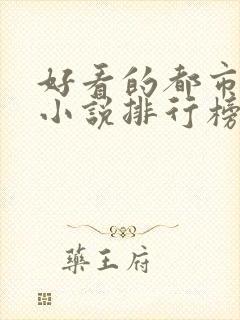 好看的都市
小说排行榜
藥王府